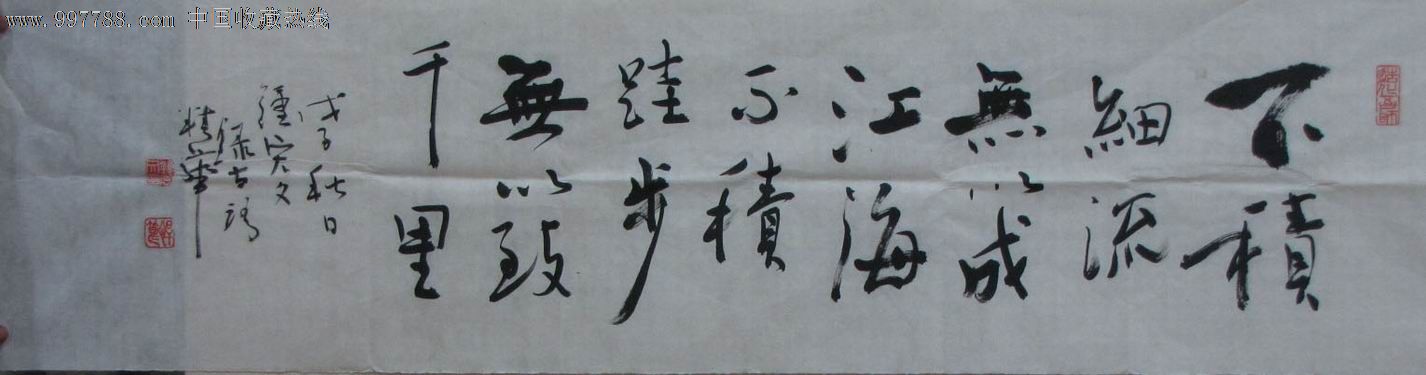 www.997788.com 中国收藏热线
不積
細流
無以成
江海
不積
跬步
無以致
千里
戊子秋日
录古语